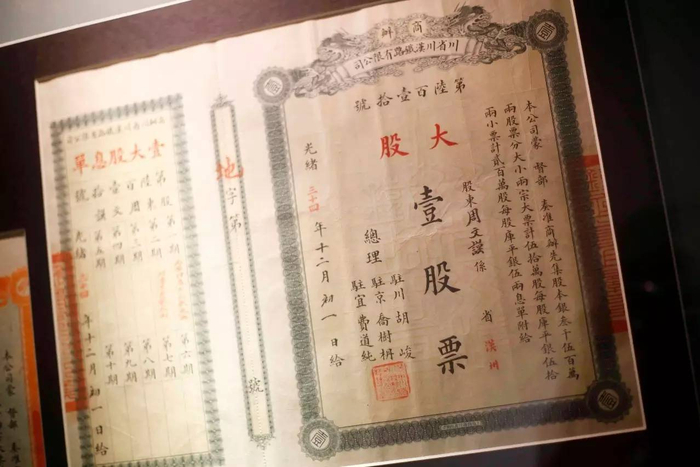 商辦
川省川漢鐵路有限公司
第陸百壹拾號
本公司蒙 督部 奏准商辦先集股本銀叁千伍百萬
兩股票分大小兩宗大票計伍拾萬股每股庫平銀伍拾
兩小票計貳百萬股每股庫平銀伍兩息單附給
大股
股東周文謨係 省 漢州
壹股票
總理
駐川胡峻
駐京喬樹枏
駐宜費道純
光緒三十四年十二月初一日給
地字第 號
川省川漢鐵路有限公司
壹大股息單
第陸百壹拾號
股東周文謨
第一期
第二期
第三期
第四期
第五期
第六期
第七期
第八期
第九期
第十期
光緒三十四年十二月初一日給
本公司蒙 督部 奏